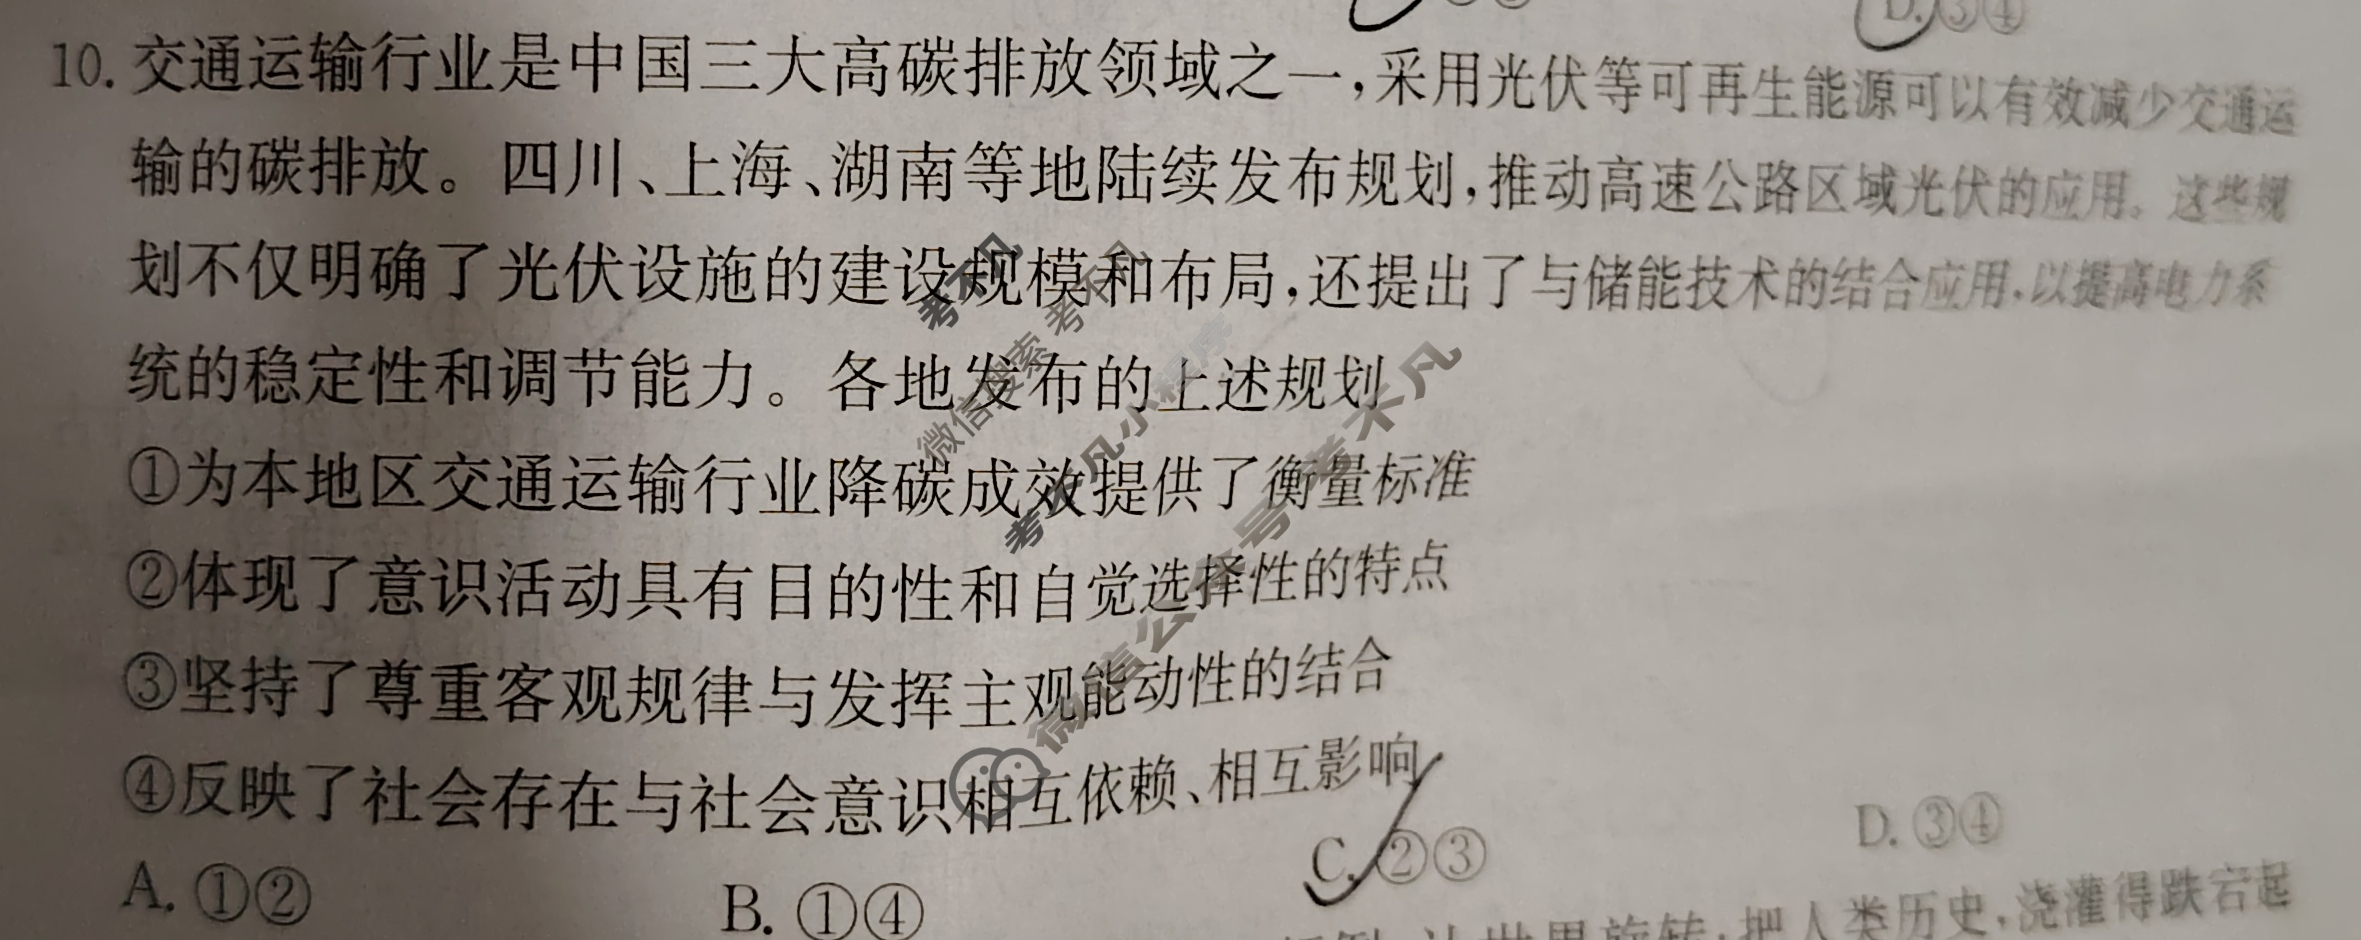 D.③④
10.交通运输行业是中国三大高碳排放领域之一,采用光伏等可再生能源可以有效减少交通运
输的碳排放。四川、上海、湖南等地陆续发布规划,推动高速公路区域光伏的应用。这些规
划不仅明确了光伏设施的建设规模和布局,还提出了与储能技术的结合应用,以提高电力系
统的稳定性和调节能力。各地发布的上述规划
①为本地区交通运输行业降碳成效提供了衡量标准
②体现了意识活动具有目的性和自觉选择性的特点
③坚持了尊重客观规律与发挥主观能动性的结合
④反映了社会存在与社会意识相互依赖、相互影响
A.①② B.①④ C.②③ D.③④
把人类历史,浇灌得跌宕起
考不凡
微信搜索 考不凡
考不凡小程序
微信公众号 考不凡